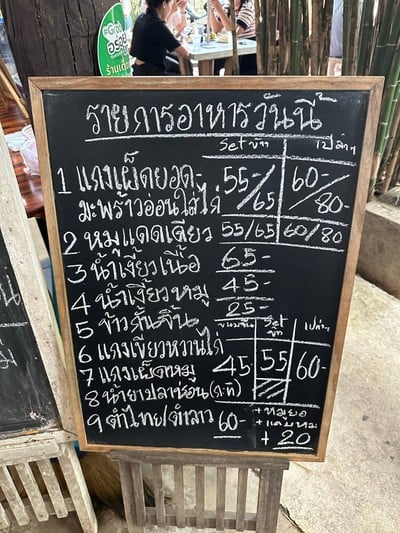 #Grab
อร่อย
รายการอาหารวันนี้
Set ข้าว เปล่าๆ
1 แกงเผ็ดยอด-
มะพร้าวอ่อนใส่ไก่ 55-/65 60-/80-
2 หมูแดดเดียว 55/65 60/80
3 น้ำเงี้ยวเนื้อ 65-
4 น้ำเงี้ยวหมู 45-
5 ข้าวกั้นจิ้น 25-
ขนมจีน Set ข้าว เปล่าๆ
6 แกงเขียวหวานไก่
7 แกงเผ็ดหมู 45 55 60-
8 น้ำยาปลาช่อน (กะทิ)
9 ตำไทย/ตำลาว 60- +หมูยอ
+แคบหมู
+20